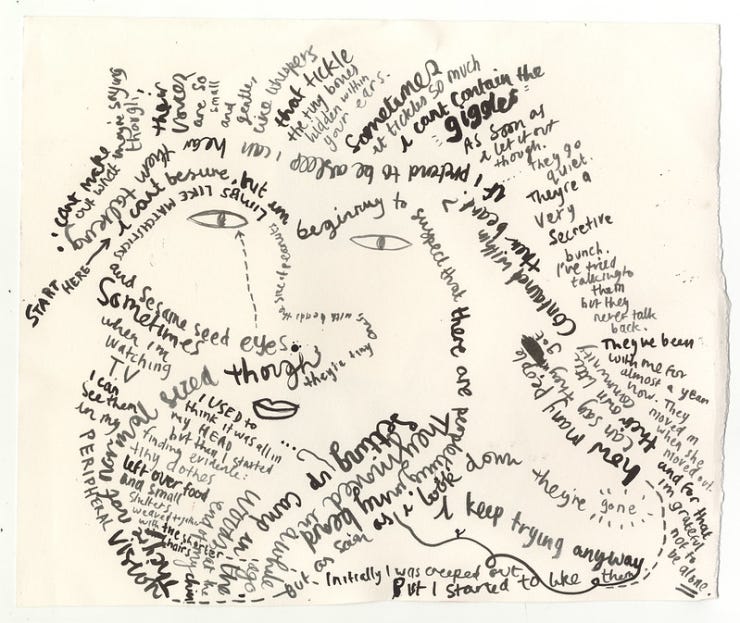 START HERE
i cant be sure, but im
beginning to
suspect that there are people
living in my beard
but as soon as i look down
they're gone
I keep trying anyway
Initially I was creeped out
But I started to like them
They moved in a while
ago
camp in the
setting up
woods in the
They're not
normal sized
though
they're tiny
LIMBS LIKE MATCHSTICKS
and Sesame seed eyes.
Sometimes
when i'm
watching
TV
I can
see them
in my
PERIPHERAL VISION
I USED TO
think it was all in
my HEAD
but then I started
finding evidence:
tiny clothes
left over food
and small
shelters
weaved together
with the shorter
hairs
my chin
if I pretend to be asleep, i can hear
them talking
i cant make
out what they're saying
though,
their
voices
are so
small
and
gentle,
like whispers
that tickle
the tiny bones
hidden within
your ears.
Sometimes
it tickles so much
i cant contain the
giggles
As soon as
i let it out
though.
They go
quiet.
They're a
very
secretive
bunch.
I've tried
talking to
them
but they
never talk
back.
They've been
with me for
almost a year
now. They
moved in
when she
moved out.
and for that
im grateful
not to
be alone.
how many people
can say
they've got
their own little
community
contained within
their beard?